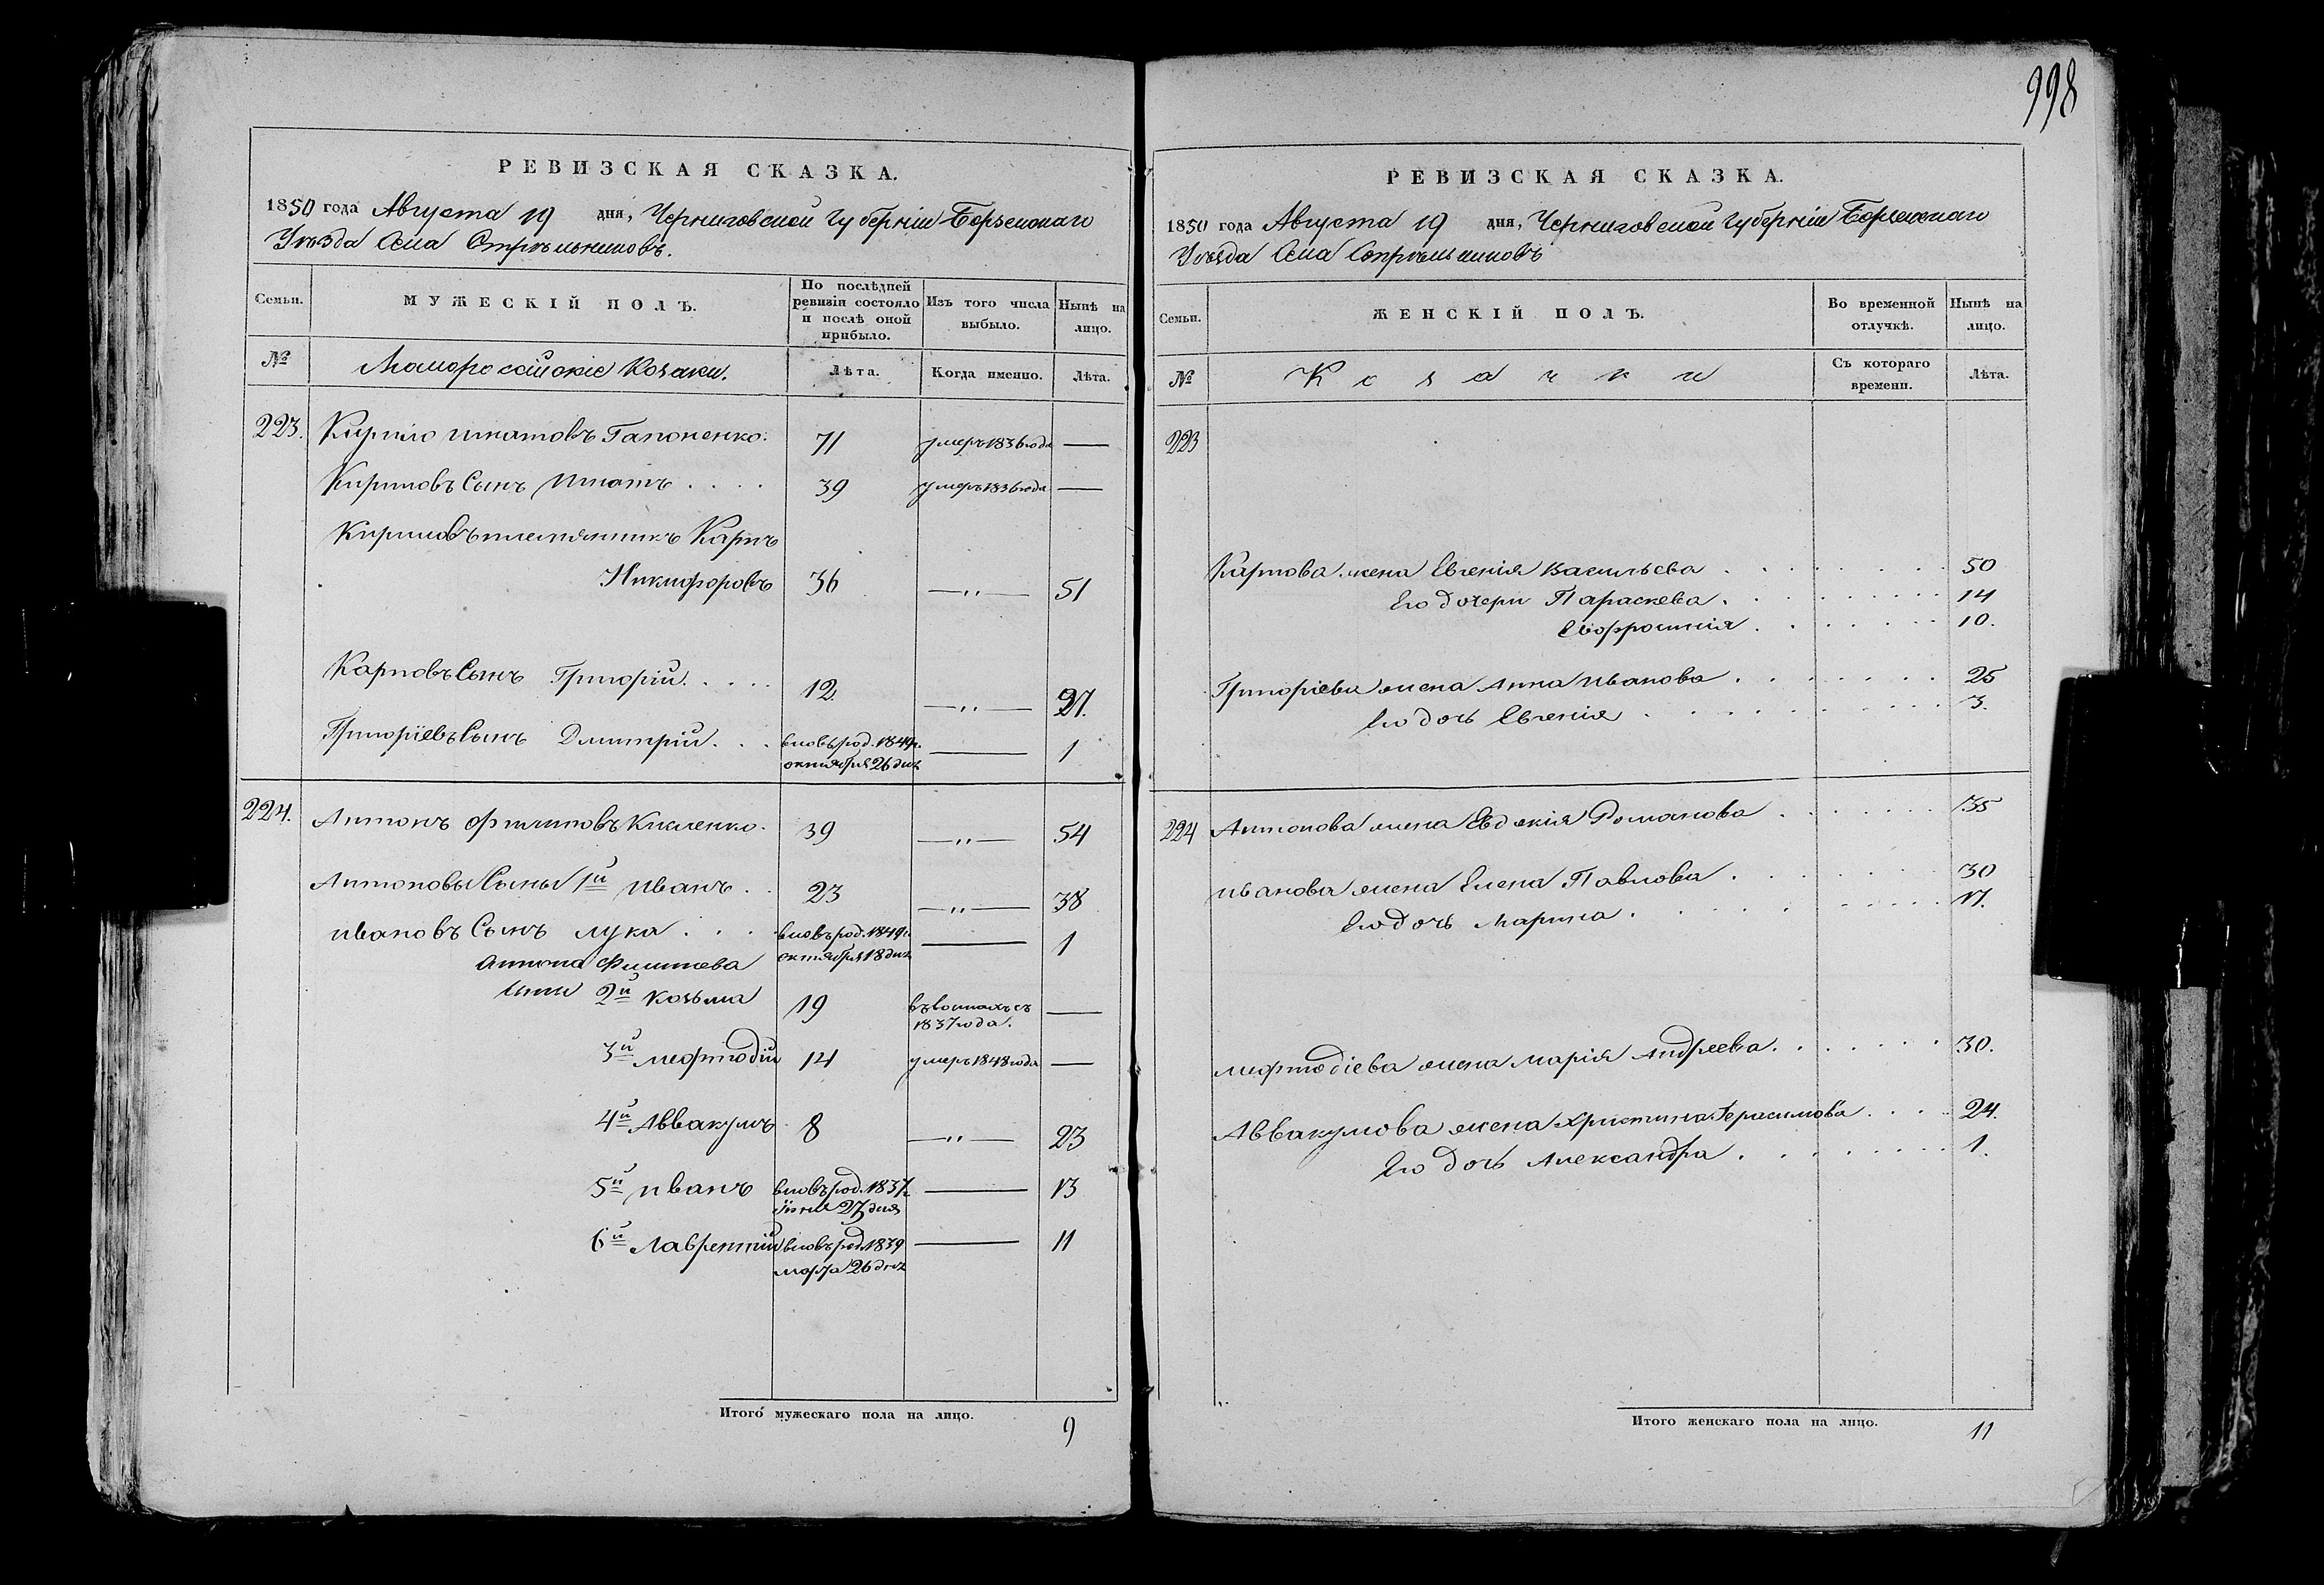 998
РЕВИЗСКАЯ СКАЗКА.
1850 года Августа 19 дня, Черниговской Губерніи Борзенскаго
Уѣзда Села Стрѣльниковъ.
Семьи.
МУЖЕСКІЙ ПОЛЪ.
По послѣдней ревизіи состояло и послѣ оной прибыло.
Изъ того числа выбыло.
Нынѣ на лицо.
№
Малороссійскіе Козаки.
Лѣта.
Когда именно.
Лѣта.
223. Кирило Игнатовъ Гапоненко. 71 умеръ 1836 года —
Кириловъ Сынъ Игнатъ . . . . 39 умеръ 1836 года —
Кириловъ племянникъ Карпъ
Никифоровъ 36 —"— 51
Карповъ Сынъ Григорій. . . . 12. —"— 27.
Григоріевъ Сынъ Дмитрій. . . вновь род. 1849 г. — 1
октября 26 дня
224. Антонъ Филиповъ Кикленко. 39 —"— 54
Антоновы Сыны 1й Иванъ . . 23 —"— 38
Ивановъ Сынъ Лука . . . вновь род. 1849 г. — 1
октября 18 дня
Антона Филипова
Сыны 2й Козьма 19 въ
1837 года. —
3й Мефтодій 14 умеръ 1848 года —
4й Аввакумъ 8 —"— 23
5й Иванъ вновь род. 1837 г. — 13
27 дня
6й Лаврентій вновь род. 1839 — 11
марта 26 дня
Итого мужескаго пола на лицо. 9
РЕВИЗСКАЯ СКАЗКА.
1850 года Августа 19 дня, Черниговской Губерніи Борзенскаго
Уѣзда Села Стрѣльниковъ
Семьи.
ЖЕНСКІЙ ПОЛЪ.
Во временной отлучкѣ.
Нынѣ на лицо.
№
Козачки
Съ котораго времени.
Лѣта.
223
Карпова жена Евгенія Васильева . . . . . . . 50
Его дочери Параскева . . . . . . . . 14
Евфросинія . . . . . . . 10.
Григоріева жена Анна Иванова . . . . . . . 25
Его дочь Евгенія . . . . . . . . . 3.
224 Антонова жена Евдокія Романова . . . . . . . 35
Иванова жена Елена Павлова . . . . . . . 30
Его дочь Марина . . . . . . . . . 11.
Мефтодіева жена Марія Андреева . . . . . . 30.
Аввакумова жена Христина Герасимова . . . . 24.
Его дочь Александра . . . . . . . . 1.
Итого женскаго пола на лицо. 11